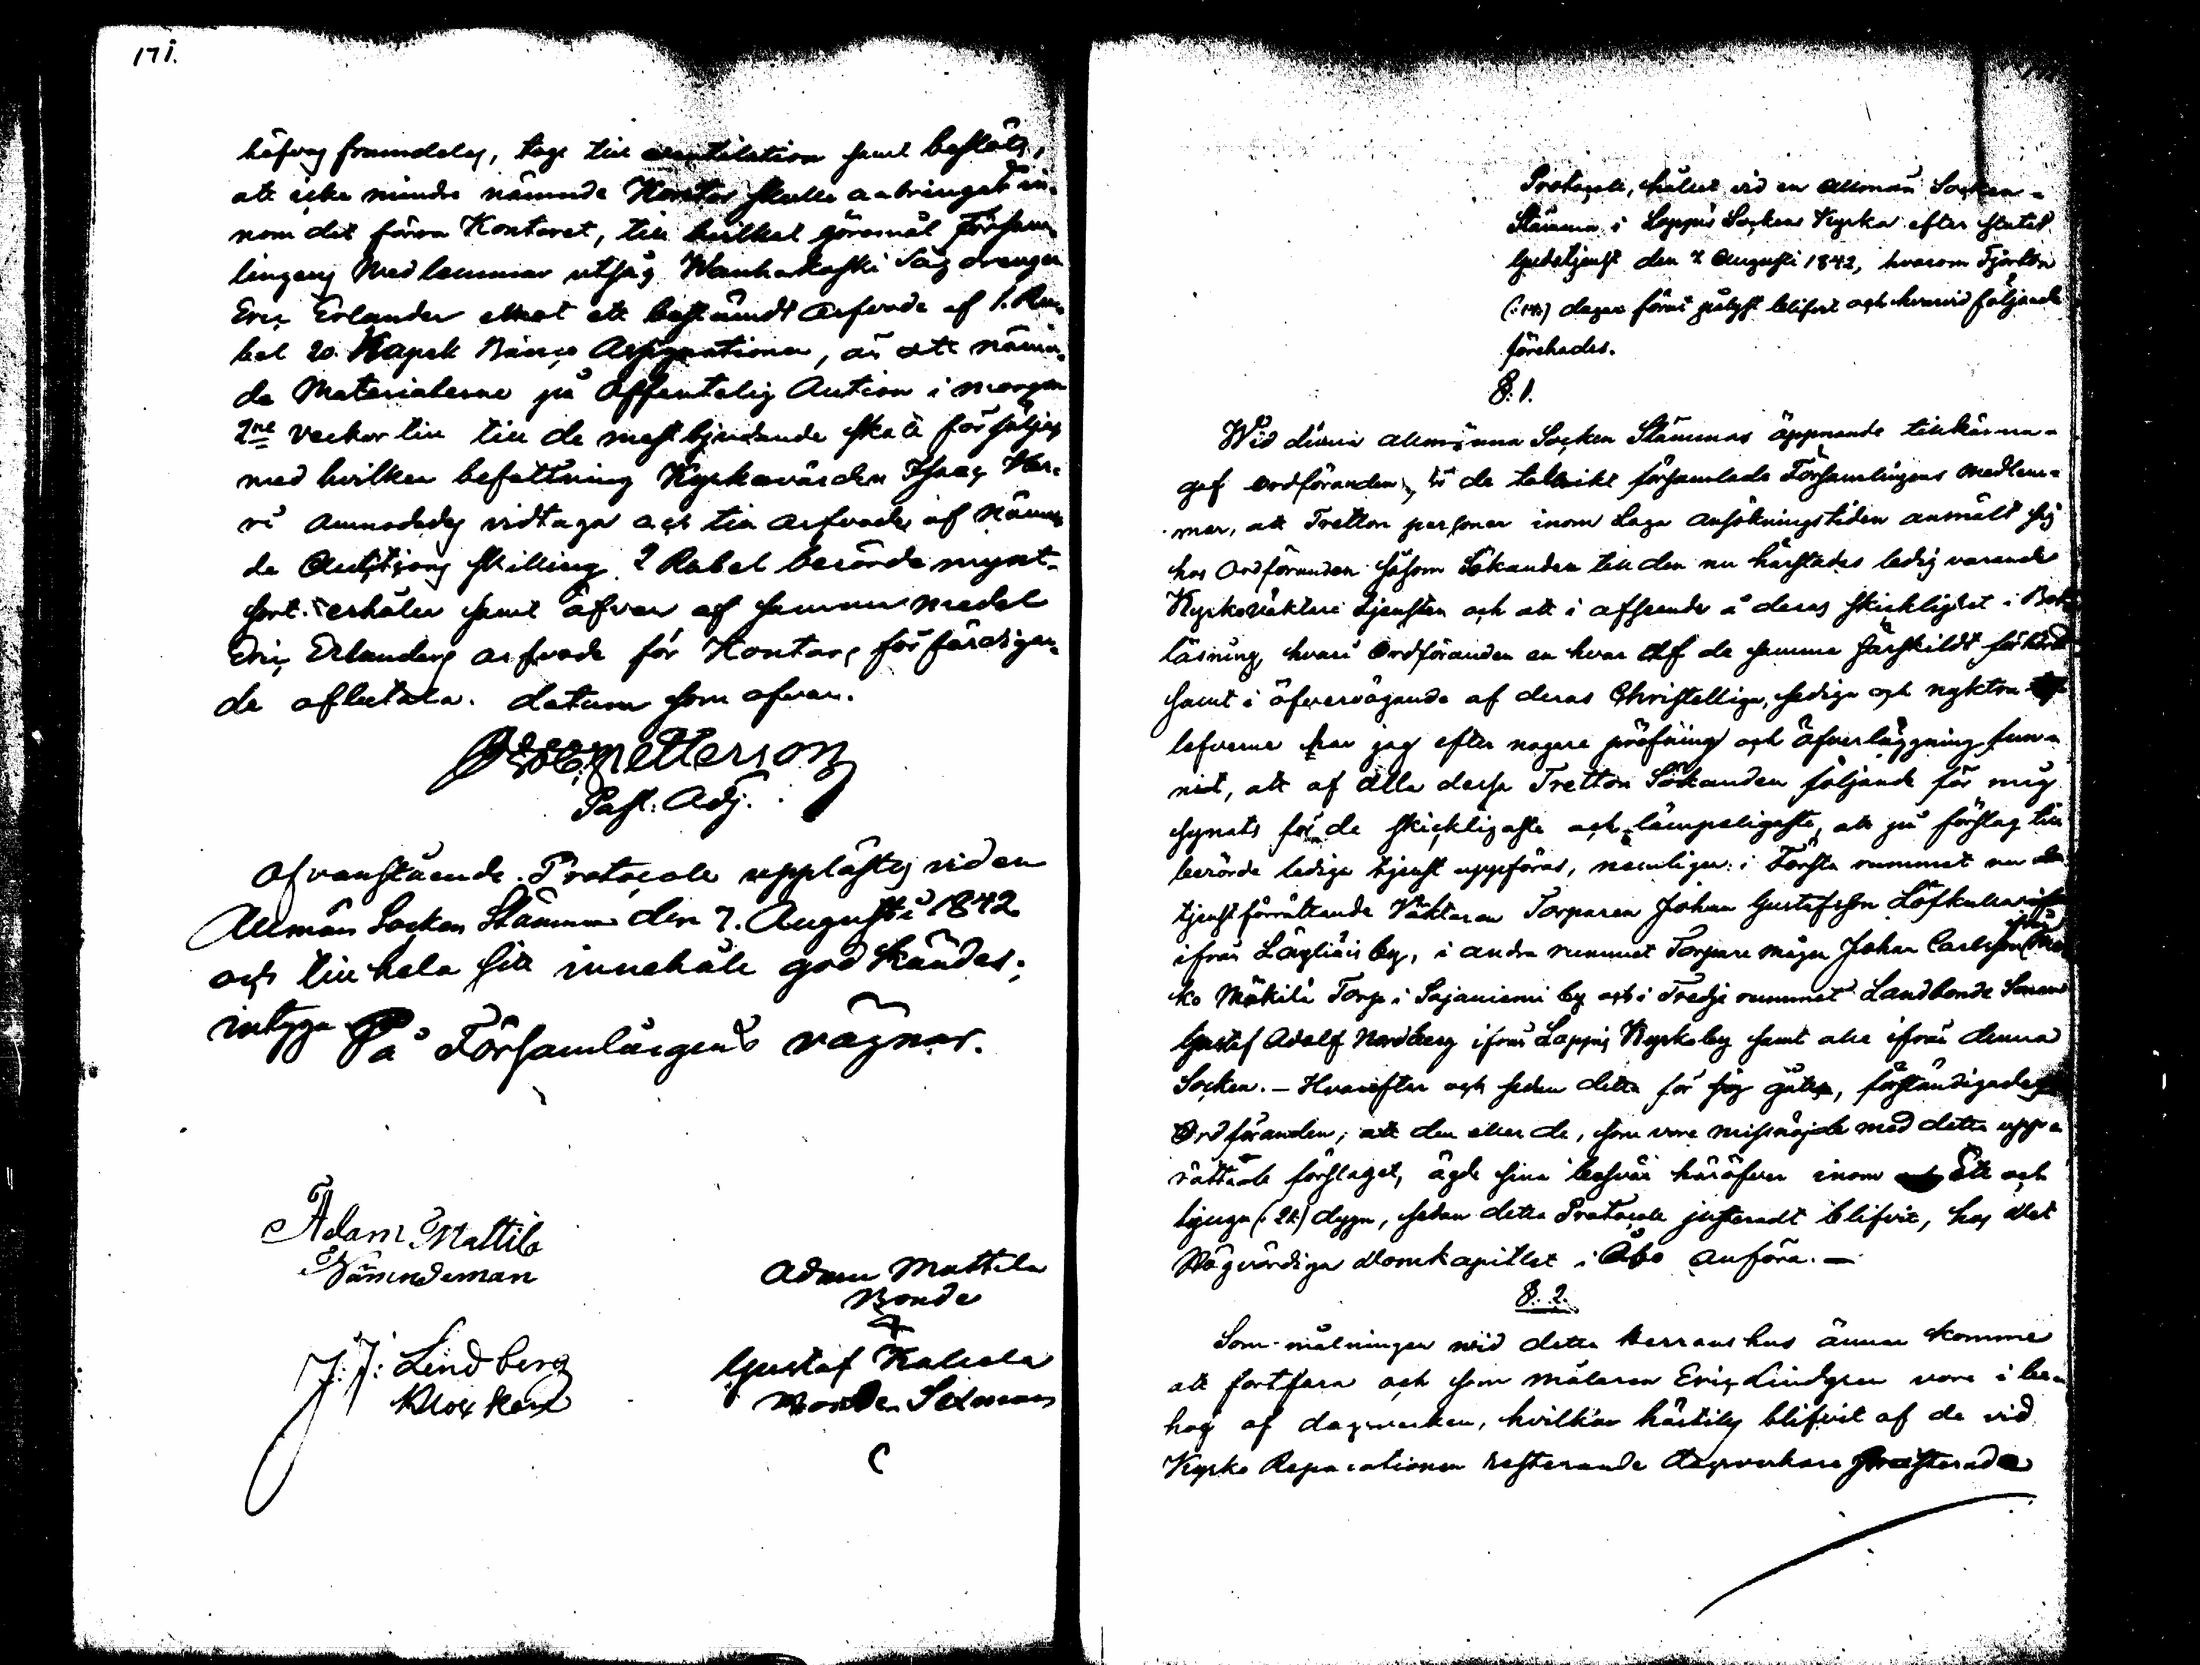 171.
häfvas framdeles, togs till ventilation samt beslöts,
att icke mindre nämnde Kontor skulle anbringas in-
nom det förra Kontoret, till hvilket göromål Försam-
lingens Medlemmar utsåg Wanhakoski Såg drengen
Eric Erlander emot ett bestämdt arfvode af 1. Ru-
bel 20. Kapek Banco Assignationer, än att nämn-
de Materialerne på offentelig Auction i morgon
2ne veckor till till de mest bjudande skall försäljas
med hvilken befattning Kyrkovärden Isaac
anmodades vidtaga och till arfvode af nämn-
de skilling 2 Rubel berörde mynt-
sort erhåller samt äfven af samma medel
Eric Erlanders arfvode för Kontors förfärdigan-
de afbetala. datum som ofvan.
Petterson
Past: Adj.
Ofvanstående Protocoll upplästes vid en
Allmän Socken Stämma den 7. Augusti 1842
och till hela sitt innehåll godkändes;
intyga På Församlingens vägnar.
Adam Mattila
Nämndeman
Adam Mattila
Bonde
J: J: Lindberg
Klockare
Gustaf
Bonde Sexman
Protocoll, hållet vid en Allmän Socken-
Stämma i Loppis Sockens Kyrka efter slutad
Gudstjenst den 7 Augusti 1842, hvarom Fjorton
(: 14:) dagar förut pålyst blifvit och hvarvid följande
förehades.
§. 1.
Wid denna allmänna Socken Stämmas öppnande tillkänna-
gaf Ordföranden, för de talrikt församlade Församlingens medlem-
mar, att Tretton personer inom Laga ansökningstiden anmält sig
hos Ordföranden såsom Sökanden till den nu härstädes ledig varande
Kyrkoväktare tjensten och att i afseende å deras skicklighet i Bok
läsning, hvari Ordföranden en hvar af de samma särskildt förhördt
samt i öfvervägande af deras Christelliga, sediga och nyktra
lefverne har jag efter nogare pröfning och öfverläggning fun-
nit, att af alla dessa Tretton Sökanden följande för mig
synats för de skickligaste och lämpeligaste, att på förslag till
berörde lediga tjenst uppföras, nemligen: i Första rummet nu
tjenstförrättande Väktaren Torparen Johan Gustafsson Löfkulla
ifrån Läyliäis by, i andra rummet Torpare mågen Johan Carlsson ifrån
ko Mäkilä Torp i Sajaniemi by och i Tredje rummet Landbonde Sonen
Gustaf Adolf Nordberg ifrån Loppis Kyrkoby samt alle ifrån denna
Socken. – Hvarefter och sedan detta för sig gått, förständigades
Ordföranden, att den eller de, som vore missnöjde med detta upp-
rättade förslaget, ägde sina besvär häröfver inom Ett och
tjugu (: 21:) dygn, sedan detta Protocoll justeradt blifvit, hos det
Högvördiga Domkapitlet i Åbo anföra. –
§. 2.
Som målningen wid detta Herrans hus ännu komme
att fortfara och som målaren Eric Lindgren vore i be-
hof af dagsverken, hvilka härtills blifvit af de vid
Kyrko Reparationen resterande dagsverkare presterade